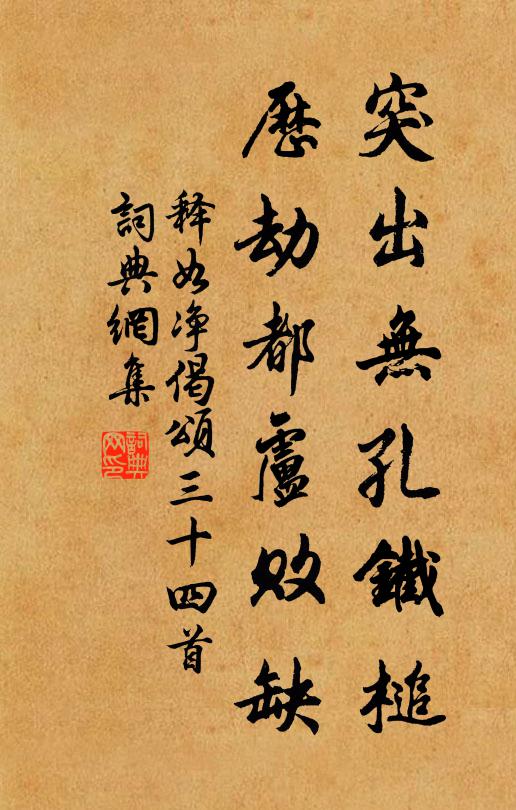 突出無孔鐵槌
歷劫都盧敗缺
释如净偈頌三十四首
詞典網集
詞典網印